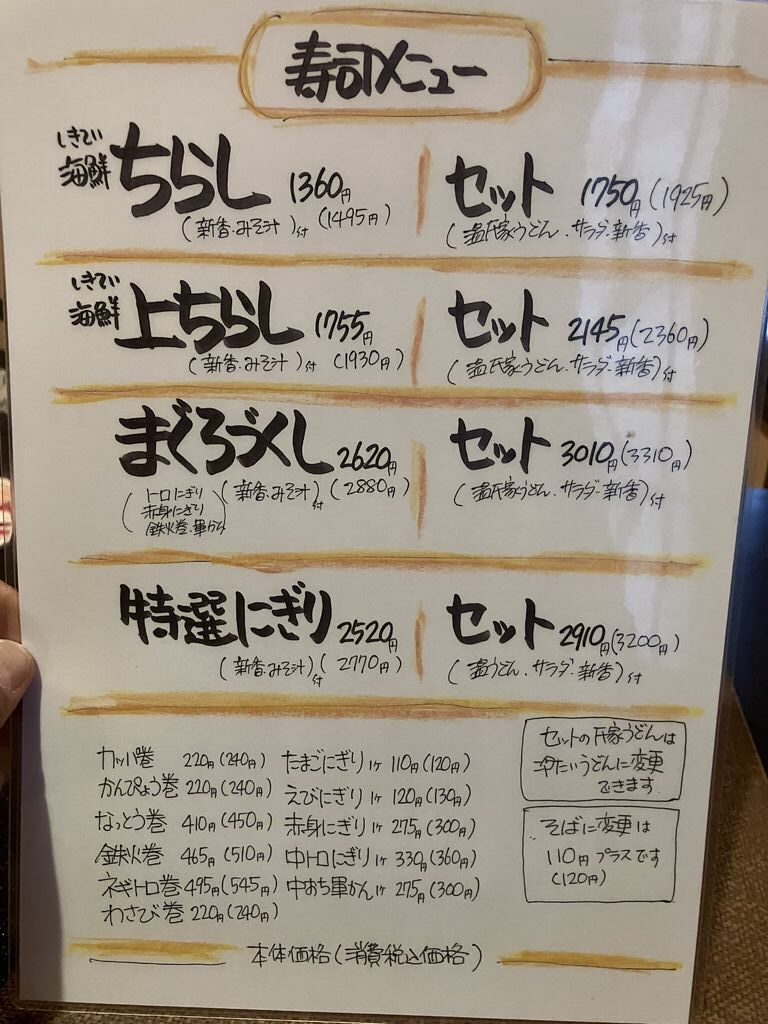 寿司メニュー
しきてい
海鮮
ちらし 1360円
(新香・みそ汁)付 (1495円)
セット 1750円(1925円)
(温氏家うどん・サラダ・新香)付
しきてい
海鮮
上ちらし 1755円
(新香・みそ汁)付 (1930円)
セット 2145円(2360円)
(温氏家うどん・サラダ・新香)付
まぐろづくし 2620円
(トロにぎり
赤身にぎり
鉄火巻・軍かん)
(新香・みそ汁)付 (2880円)
セット 3010円(3310円)
(温氏家うどん・サラダ・新香)付
特選にぎり 2520円
(新香・みそ汁)付 (2770円)
セット 2910円(3200円)
(温うどん・サラダ・新香)付
カッパ巻 220円(240円)
かんぴょう巻 220円(240円)
なっとう巻 410円(450円)
鉄火巻 465円(510円)
ネギトロ巻 495円(545円)
わさび巻 220円(240円)
たまごにぎり 1ケ 110円(120円)
えびにぎり 1ケ 120円(130円)
赤身にぎり 1ケ 275円(300円)
中トロにぎり 1ケ 330円(360円)
中おち軍かん 1ケ 275円(300円)
セットの氏家うどんは
冷たいうどんに変更
できます
そばに変更は
110円プラスです
(120円)
本体価格(消費税込価格)